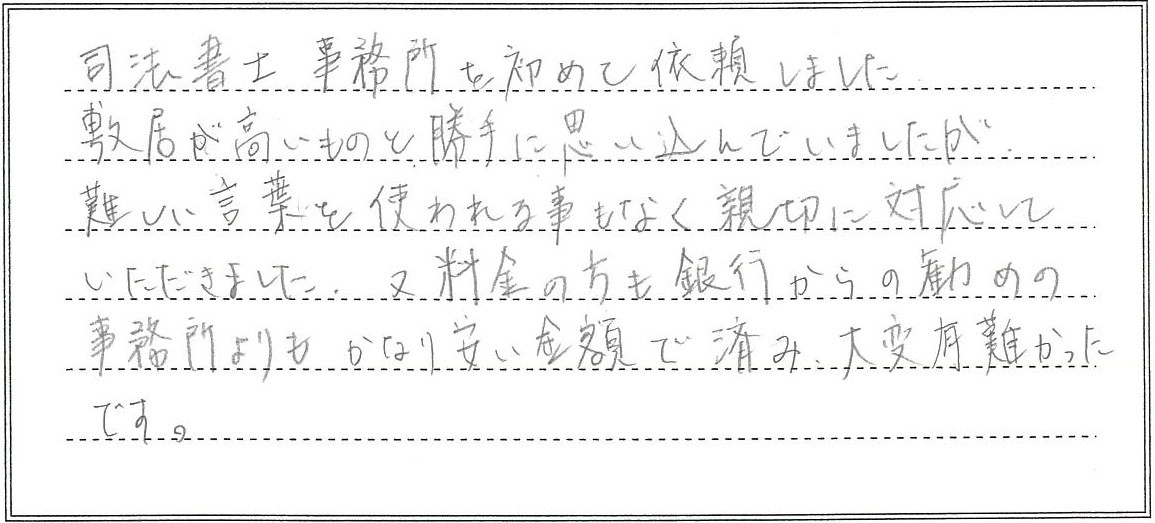 司法書士事務所を初めて依頼しました.
敷居が高いものと勝手に思い込んでいましたが.
難しい言葉を使われる事もなく親切に対応して
いただきました. 又料金の方も銀行からの勧めの
事務所よりもかなり安い金額で済み、大変有難かった
です。